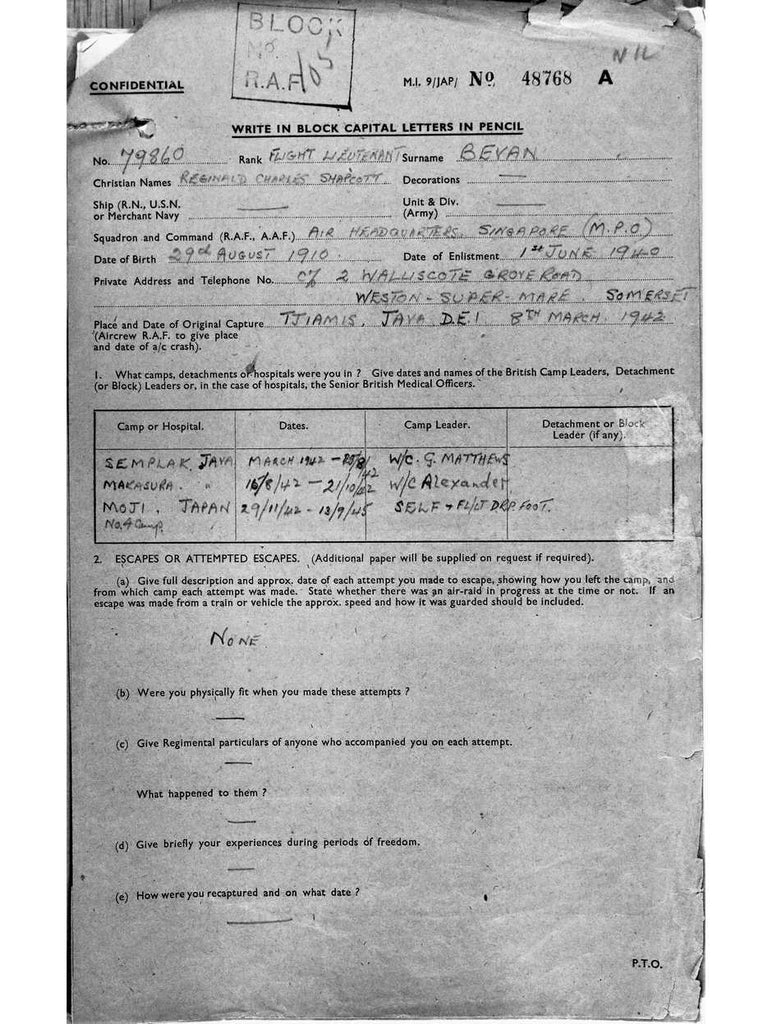 BLOCK
No. 105
R.A.F.
NIL
CONFIDENTIAL
M.I. 9/JAP/ No 48768 A
WRITE IN BLOCK CAPITAL LETTERS IN PENCIL
No. 79860 Rank FLIGHT LIEUTENANT Surname BEVAN
Christian Names REGINALD CHARLES SHAPCOTT Decorations —
Ship (R.N., U.S.N. — Unit & Div. —
or Merchant Navy (Army)
Squadron and Command (R.A.F., A.A.F.) AIR HEADQUARTERS, SINGAPORE (M.P.O)
Date of Birth 29th AUGUST 1910. Date of Enlistment 1st JUNE 1940
Private Address and Telephone No. c/o 2 WALLISCOTE GROVE ROAD
WESTON-SUPER-MARE. SOMERSET
Place and Date of Original Capture TJIAMIS, JAVA D.E.I. 8TH MARCH. 1942
(Aircrew R.A.F. to give place
and date of a/c crash).
1. What camps, detachments or hospitals were you in ? Give dates and names of the British Camp Leaders, Detachment
(or Block) Leaders or, in the case of hospitals, the Senior British Medical Officers.
Camp or Hospital. Dates. Camp Leader. Detachment or Block
Leader (if any).
SEMPLAK, JAVA MARCH 1942 – /8/42 W/C. G. MATTHEWS
MAKASURA. " 16/8/42 – 21/10/42 W/C Alexander
MOJI, JAPAN 29/11/42 – 13/9/45 SELF + FL/LT DRP. FOOT.
No. 4 Camp.
2. ESCAPES OR ATTEMPTED ESCAPES. (Additional paper will be supplied on request if required).
(a) Give full description and approx. date of each attempt you made to escape, showing how you left the camp, and
from which camp each attempt was made. State whether there was an air-raid in progress at the time or not. If an
escape was made from a train or vehicle the approx. speed and how it was guarded should be included.
NONE
(b) Were you physically fit when you made these attempts ?
—
(c) Give Regimental particulars of anyone who accompanied you on each attempt.
—
What happened to them ?
—
(d) Give briefly your experiences during periods of freedom.
—
(e) How were you recaptured and on what date ?
—
P.T.O.